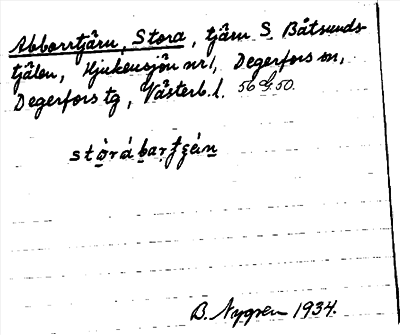 Abborrtjärn, Stora, tjärn S Båtsunds-
tjälen, Hjukensjön nr 1, Degerfors sn,
Degerfors tg, Västerb. l. 56 G 50.
B. Nygren 1934.